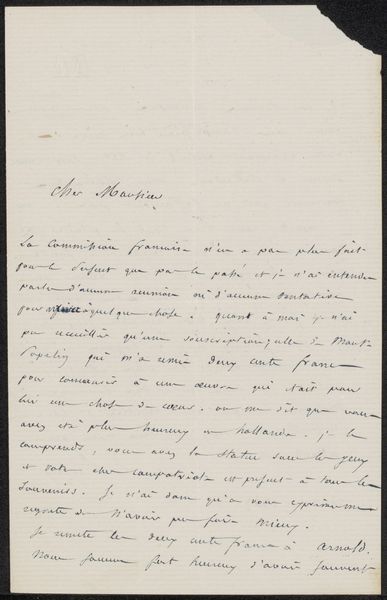 Cher Monsieur
La Commission francaise n'en a pas plus fait
pour le present que par le passé et je n'ai entendu
parler d'aucune reunion ni d'aucune tentative
pour quelque chose. quant à moi je n'ai
pu recueillir qu'une souscription celle de
Popelin qui m'a remis deux cents francs
pour concourir à une œuvre qui etait pour
lui une chose de cœur. on me dit que vous
avez eté plus heureux en hollande. je le
comprends, vous avez la statue sous les yeux
et votre cher compatriote est présent à tous les
souvenirs. Je n'ai donc qu'a vous exprimer mes
regrets de n'avoir pu faire mieux.
Je remets les deux cents francs à Arnold.
Nous sommes fort heureux d'avoir